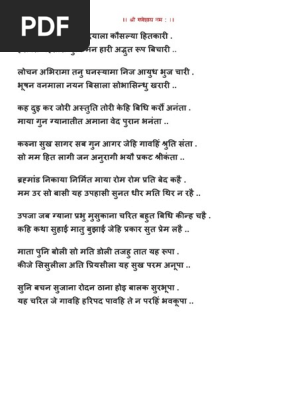 PDF
।। श्री गणेशाय नमः ।।
दयाला कौसल्या हितकारी .
मन हारी अद्भुत रूप बिचारी ..
लोचन अभिरामा तनु घनस्यामा निज आयुध भुज चारी .
भूषन वनमाला नयन बिसाला सोभासिन्धु खरारी ..
कह दुइ कर जोरी अस्तुति तोरी केहि बिधि करौं अनंता .
माया गुन ग्यानातीत अमाना वेद पुरान भनंता ..
करुना सुख सागर सब गुन आगर जेहि गावहिं श्रुति संता .
सो मम हित लागी जन अनुरागी भयौ प्रकट श्रीकंता ..
ब्रह्मांड निकाया निर्मित माया रोम रोम प्रति बेद कहै .
मम उर सो बासी यह उपहासी सुनत धीर मति थिर न रहै ..
उपजा जब ग्याना प्रभु मुसुकाना चरित बहुत बिधि कीन्ह चहै .
कहि कथा सुहाई मातु बुझाई जेहि प्रकार सुत प्रेम लहै ..
माता पुनि बोली सो मति डोली तजहु तात यह रूपा .
कीजे सिसुलीला अति प्रियसीला यह सुख परम अनूपा ..
सुनि बचन सुजाना रोदन ठाना होइ बालक सुरभूपा .
यह चरित जे गावहि हरिपद पावहि ते न परहिं भवकूपा ..